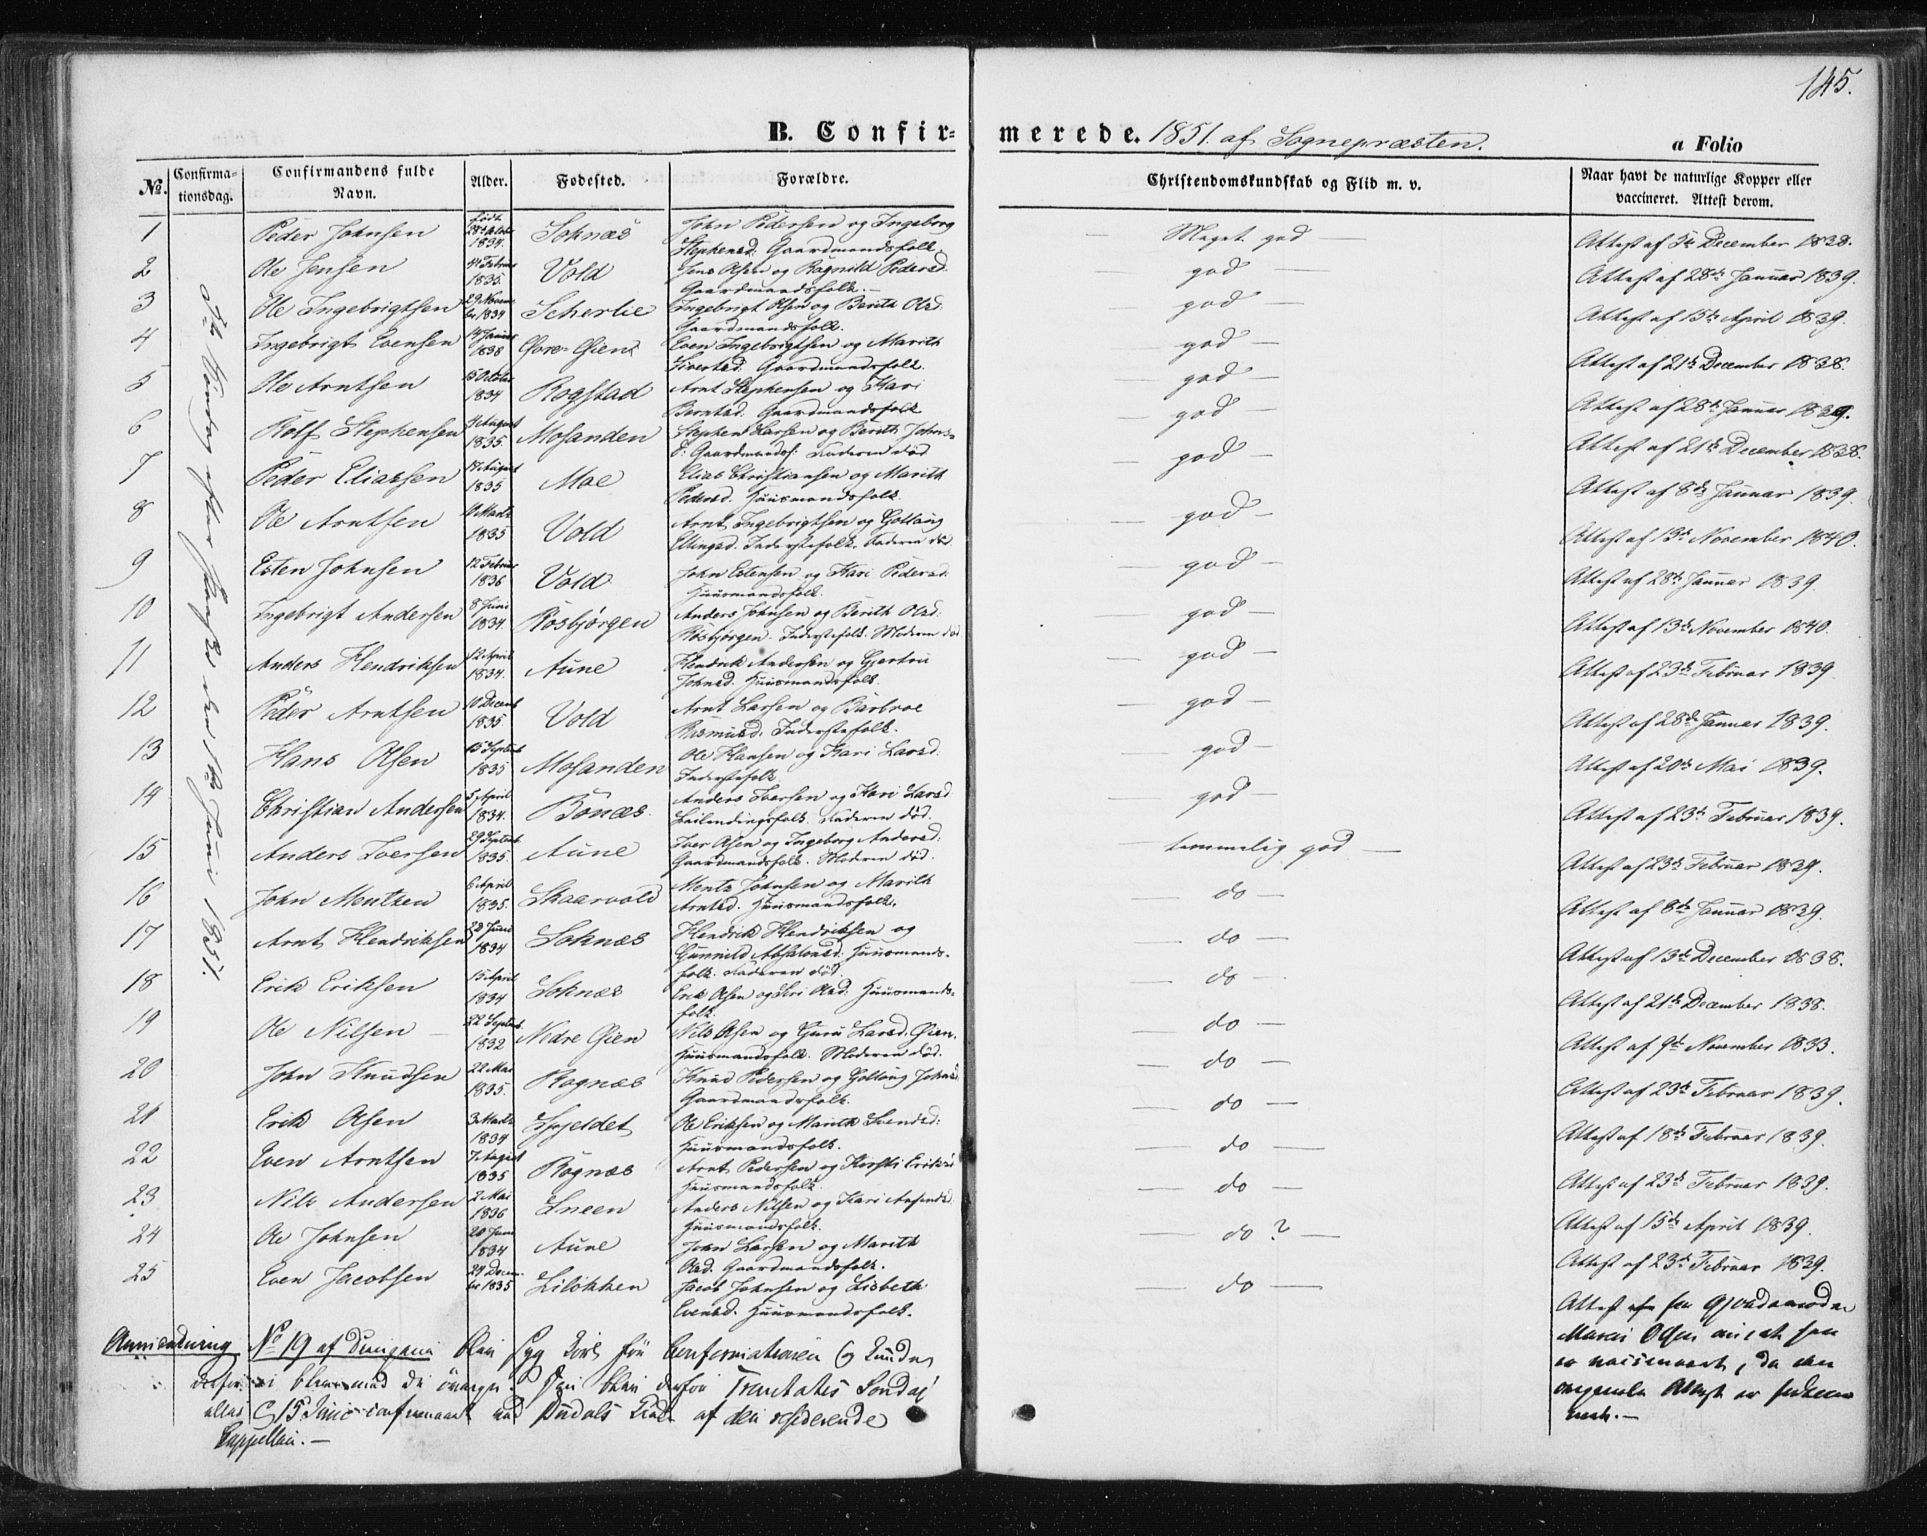 145.
B. Confirmerede. 1851. af Sognepræsten.
a Folio
№. Confirmationsdag. Confirmandens fulde Navn. Alder. Fødested. Forældre. Christendomskundskab og Flid m. v. Naar havt de naturlige Kopper eller vaccineret. Attest derom.
Søndag efter den 1851.
1 Peder Johnsen født 1834. Soknæs John Pedersen og Ingeborg Stephensd. Gaardmandsfolk. Meget god Attest af December 1838.
2 Ole Jensen Februar 1835. Vold Jens Olsen og Ragnild Pedersd. Gaardmandsfolk. god Attest af 28de Januar 1839.
3 Ole Ingebrigtsen 29 Novem ber 1834 Scherlie Ingebrigt Olsen og Berith Olsd. Gaardmandsfolk. god Attest af 15de April 1839.
4 Ingebrigt Evensen 14 Januar Øvre-Øien Even Ingebrigtsen og Marith Sivertsd. Gaardmandsfolk. god Attest af 21de December 1838.
5 Ole Arntsen October 1834 Rogstad Arnt Stephensen og Kari Berntsd. Gaardmandsfolk god Attest af 28de Januar 1839.
6 Rolf Stephensen August 1835. Mosanden Stephen Larsen og Berith Johns- d: Gaardmandsf: Faderen død god Attest af 21de December 1838.
7 Peder Eliassen August 1835 Moe Elias Christiansen og Marith Pedersd. Huusmandsfolk. god Attest af 8de Januar 1839.
8 Ole Arntsen Marts 1835 Vold Arnt Ingebrigtsen og Gollaug Ellingsd. Inderstefolk. Faderen død god Attest af 13de November 1840.
9 Esten Johnsen 12 Februar 1836 Vold John Estensen og Kari Pedersd. Huusmandsfolk. god Attest af 28de Januar 1839.
10 Ingebrigt Andersen 8 Juni 1834. Rosbjørgen Anders Johnsen og Berith Olsd. Rosbjørgen. Inderstefolk. Moderen død god Attest af 13de November 1840.
11 Anders Hendriksen 12 April 1834. Aune Hendrik Andersen og Gjertru Johnsd. Huusmandsfolk. god Attest af 23de Februar 1839.
12 Peder Arntsen 10 Decemb 1835. Vold Arnt Larsen og Barbroe Rasmusd. Inderstefolk. god Attest af 28de Januar 1839.
13 Hans Olsen Septemb 1835 Mosanden Ole Hansen og Kari Larsd. Inderstefolk god Attest af 20de Mai 1839.
14 Christian Andersen April 1834. Bonæs. Anders Iversen og Kari Larsd. Leilendingsfolk. Faderen død. god Attest af 23de Februar 1839.
15 Anders Iversen 29 Septemb 1835. Aune Iver Olsen og Ingeborg Andersd: Gaardmandsfolk. Moderen død. temmelig god Attest af 23de Februar 1839.
16 John Mentzen 6 April 1835. Skaarvold Mentz Johnsen og Marith Arntsd. Huusmandsfolk. do Attest af 8de Januar 1839.
17 Arnt Hendriksen 23 Juni 1834 Soknæs Hendrik Hendriksen og Gunnild Absalonsd. Huusmands- folk. Faderen død. do Attest af 13de December 1838.
18 Erik Eriksen 15 April 1834 Soknæs Erik Olsen og Siri Olsd: Huusmands- folk. do Attest af 21de December 1838.
19 Ole Nilsen 22 Septemb 1832 Nedre Øien Nils Olsen og Guru Larsd. Øien. Huusmandsfolk. Moderen død. do Attest af 9de November 1833.
20 John Knudsen 22 Mai 1835. Rognæs Knud Pedersen og Gollaug Johnsd. Gaardmandsfolk. do Attest af 23de Februar 1839.
21 Erik Olsen 3 Marts 1834 Gjeldet Ole Eriksen og Marith Svendsd: Huusmandsfolk. do Attest af 18de Februar 1839.
22 Even Arntsen 7 August 1835 Rognæs Arnt Pedersen og Kersti Eriksd Huusmandsfolk. do Attest af 23de Februar 1839.
23 Nils Andersen 2 Mai 1836 Sneen Anders Nilsen og Kari Huusmandsfolk. do Attest af 15de April 1839.
24 Ole Johnsen 20 Juni 1834 Aune John Larsen og Marith Olsd. Gaardmandsfolk. do ? Attest af 23de Februar 1839.
25 Even Jacobsen Decem ber 1835 Liløkken Jacob Johnsen og Lisbeth Evensd. Huusmandsfolk. do Attest fra Olsen at han er vaccineret, da den Attest er
Anmærkning No 19 af Drengene blev syg før Confirmationen og kunde
derfor ei blive med de øvrige. Han blev derfor Trinitatis Søndag
15 Juni confirmeret ved Budals Kirke af den residerende
Cappellan.